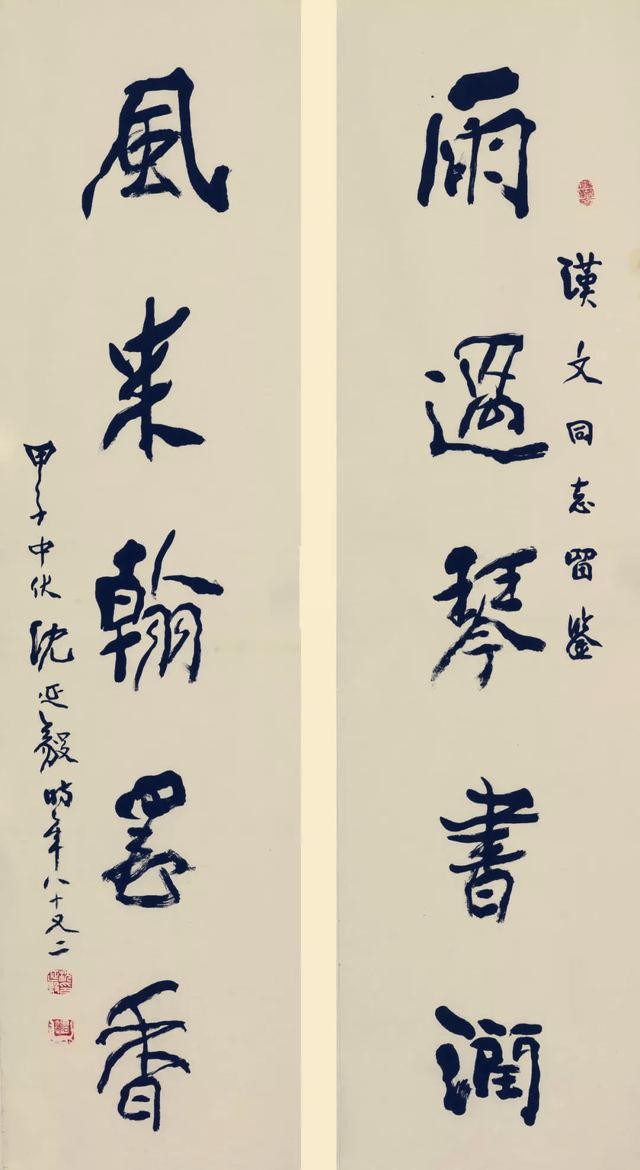 漢文同志留鉴
雨過琴書潤
風来翰墨香
甲子中伏沈延毅時年八十又二